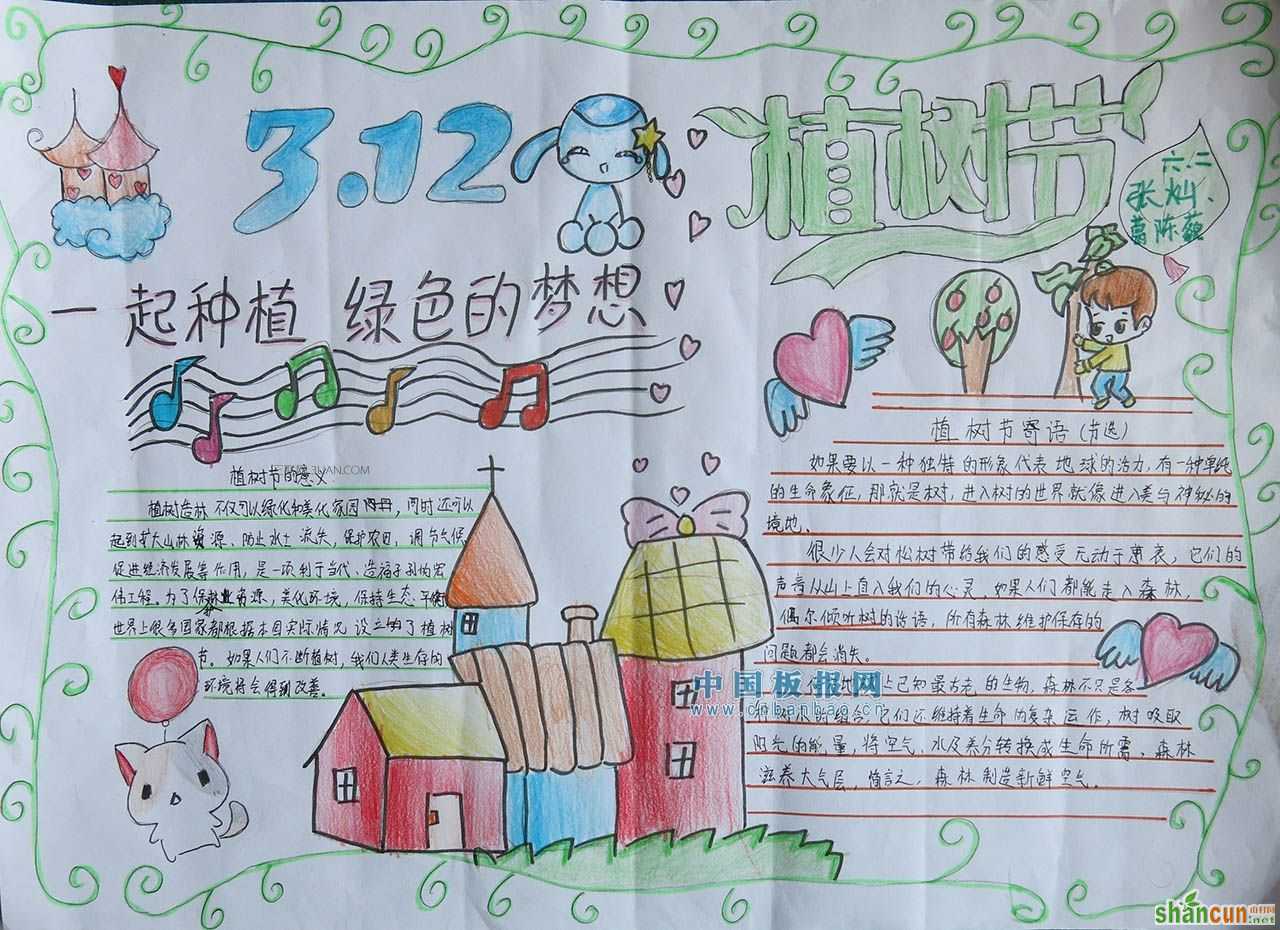 3.12
植树节
六二
张灿、
葛陈
一起种植 绿色的梦想
植树节的意义
植树造林不仅可以绿化和美化家园，同时还可以
起到扩大山林资源、防止水土流失，保护农田，调节气候
促进经济发展等作用，是一项利于当代、造福子孙的宏
伟工程。为了保林业资源，美化环境，保持生态平衡
世界上很多国家都根据本国实际情况设立的了植树
节。如果人们不断植树，我们人类生存的
环境将会得到改善。
植树节寄语(节选)
如果要以一种独特的形象代表地球的活力，有一种单纯
的生命象征，那就是树，进入树的世界就像进入美与神秘的
境地、
很少人会对松树带给我们的感受无动于衷，它们的
声音从山上直入我们的心灵。如果人们都能走入森林，
偶尔倾听树的话语，所有森林维护保存的
问题都会消失。
上已知最古老的生物，森林不只是各
种的组合，它们还维持着生命的复杂运作，树吸取
阳光的能量，将空气、水及养分转换成生命所需、森林
滋养大气层，简言之，森林制造新鲜空气。
中国板报网
www.cnbanbao.cn
shancun
山村网
.net